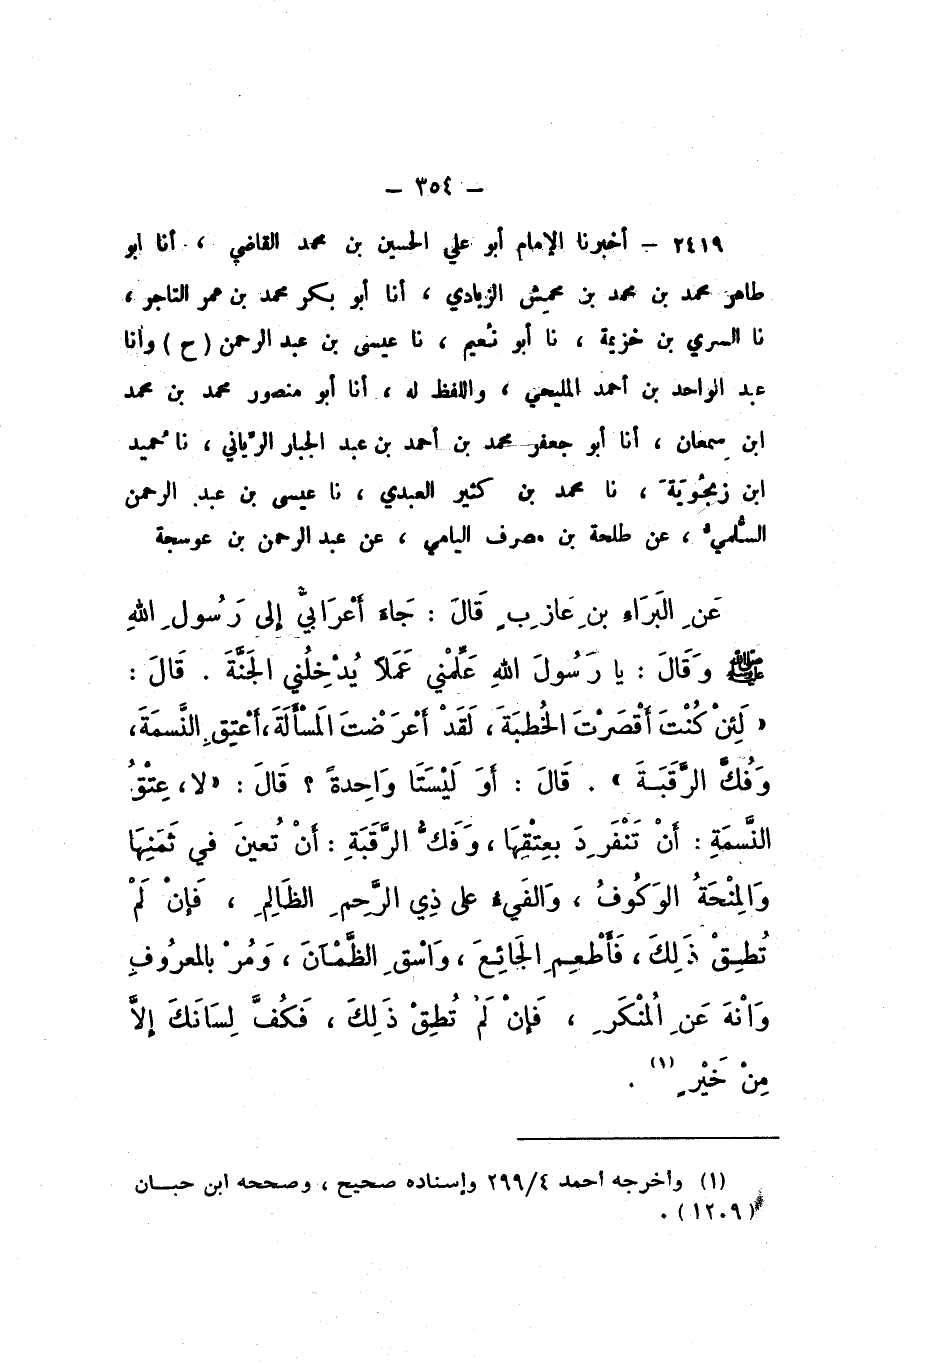 - ٣٥٤ -
٢٤١٩ - أخبرنا الإمام أبو علي الحسين بن محمد القاضي ، أنا ابو
طاهر محمد بن محمد بن محمِش الزيادي ، أنا أبو بكر محمد بن عمر التاجر ،
نا السري بن خزيمة ، نا أبو نُعيم ، نا عيسى بن عبد الرحمن ( ح ) وأنا
عبد الواحد بن أحمد المليحي ، واللفظ له ، أنا أبو منصور محمد بن محمد
ابن سِمعان ، أنا أبو جعفر محمد بن أحمد بن عبد الجبار الرَّياني ، نا حُميد
ابن زنجُويَة َ ، نا محمد بن كثير العبدي ، نا عيسى بن عبد الرحمن
السُّلمي ُ ، عن طلحة بن مصرف اليامي ، عن عبد الرحمن بن عوسجة
عَنِ البَرَاءِ بنِ عَازِبٍ قَالَ : جَاءَ أَعْرَابيٌّ إلى رَسُولِ اللهِ
ﷺ وَقَالَ : يا رَسُولَ اللهِ عَلِّمْني عَمَلاً يُدْخِلُني الجَنَّةَ . قَالَ :
« لَئِنْ كُنْتَ أَقْصَرْتَ الخُطبَةَ ، لَقَدْ أَعْرَضْتَ المَسْأَلَةَ ، أَعْتِقِ النَّسمَةَ ،
وَفُكَّ الرَّقَبَةَ » . قَالَ : أَوَ لَيْسَتَا وَاحِدةً ؟ قَالَ : « لا ، عِتْقُ
النَّسمَةِ : أَنْ تَنْفَرِدَ بعِتْقِهَا ، وَفَكُّ الرَّقَبَةِ : أَنْ تُعينَ في ثَمَنِهَا
وَالمِنْحَةُ الوَكُوفُ ، وَالفَيءُ على ذِي الرَّحِمِ الظَالِمِ ، فَإنْ لَمْ
تُطِقْ ذَلِكَ ، فَأَطْعِمِ الجَائِعَ ، وَاسْقِ الظَّمْآنَ ، وَمُرْ بالمعرُوفِ
وَانْهَ عَنِ المُنْكَرِ ، فَإنْ لَمْ تُطِقْ ذَلِكَ ، فَكُفَّ لِسَانَكَ إلاَّ
مِنْ خَيْرٍ (١) .
(١) وأخرجه أحمد ٢٩٩/٤ وإسناده صحيح ، وصححه ابن حبـــان
(١٢٠٩) .